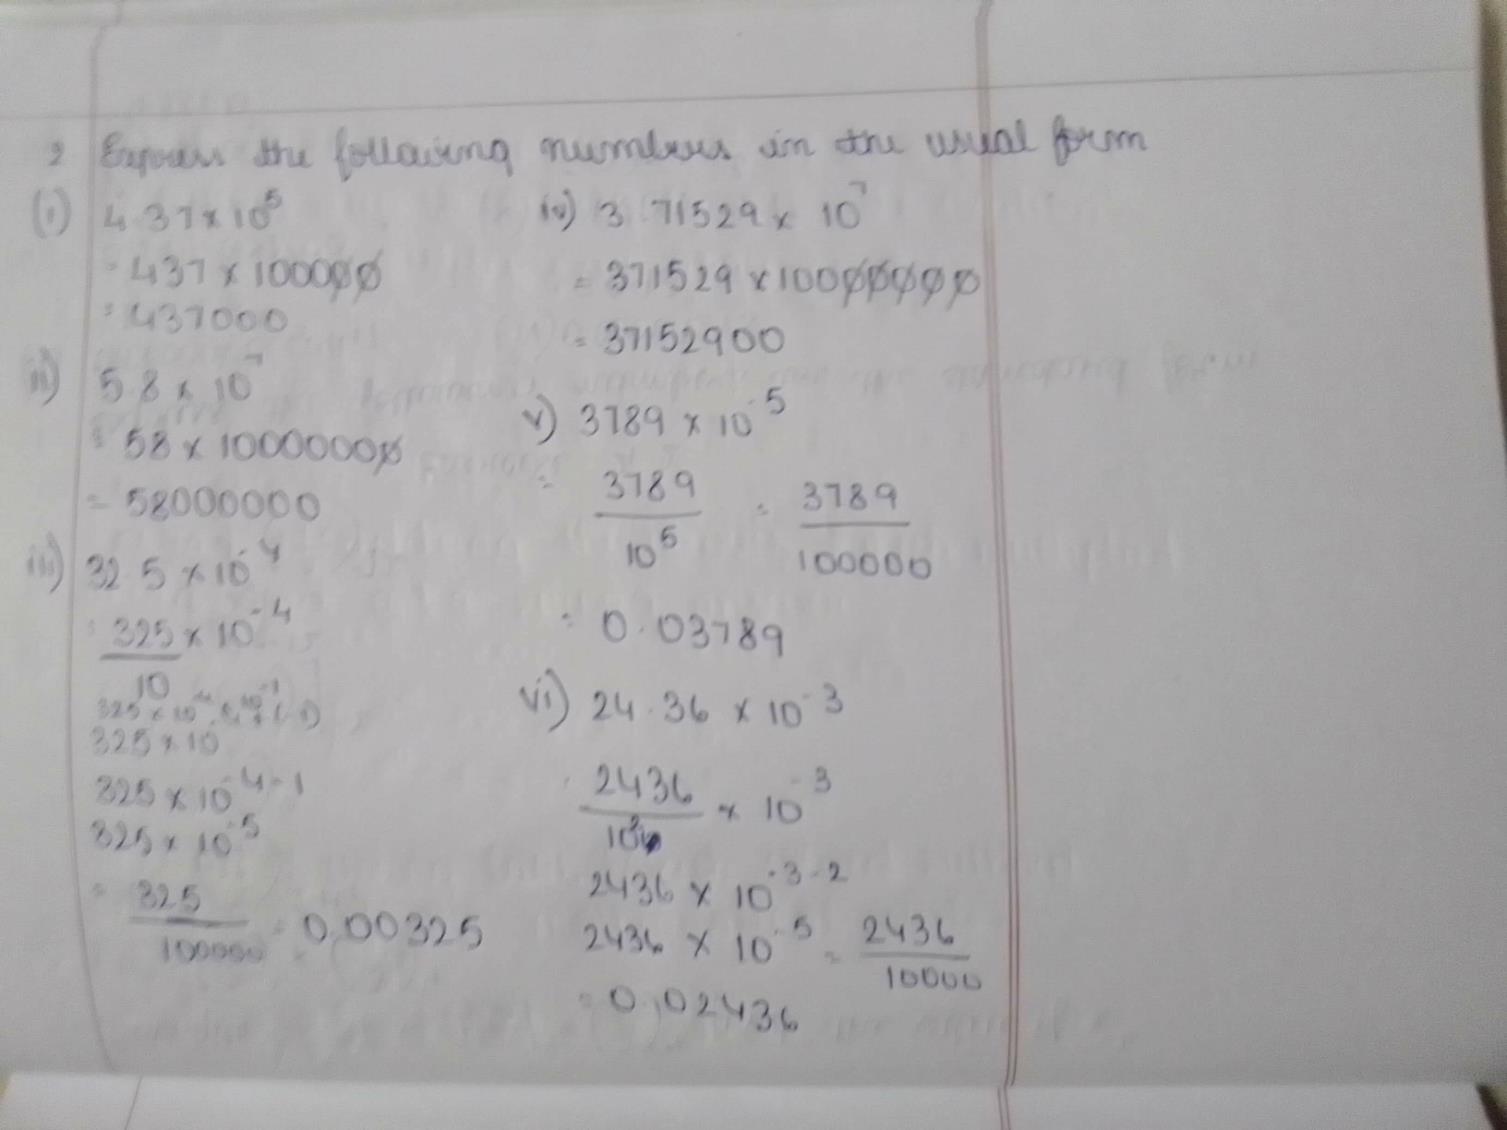 2 Express the following numbers in the usual form
(i) 4.37 x 10^5
= 437 x 100000
= 437000
ii) 5.8 x 10^7
= 58 x 10000000
= 58000000
iii) 32.5 x 10^-4
= 325/10 x 10^-4
325 x 10
325 x 10^-4-1
325 x 10^-5
= 325/100000 = 0.00325
iv) 3.71529 x 10^7
= 371529 x 10000000
= 37152900
v) 3789 x 10^-5
= 3789/10^5 = 3789/100000
= 0.03789
vi) 24.36 x 10^-3
2436/10^2 x 10^-3
2436 x 10^-3-2
2436 x 10^-5 = 2436/10000
= 0.02436